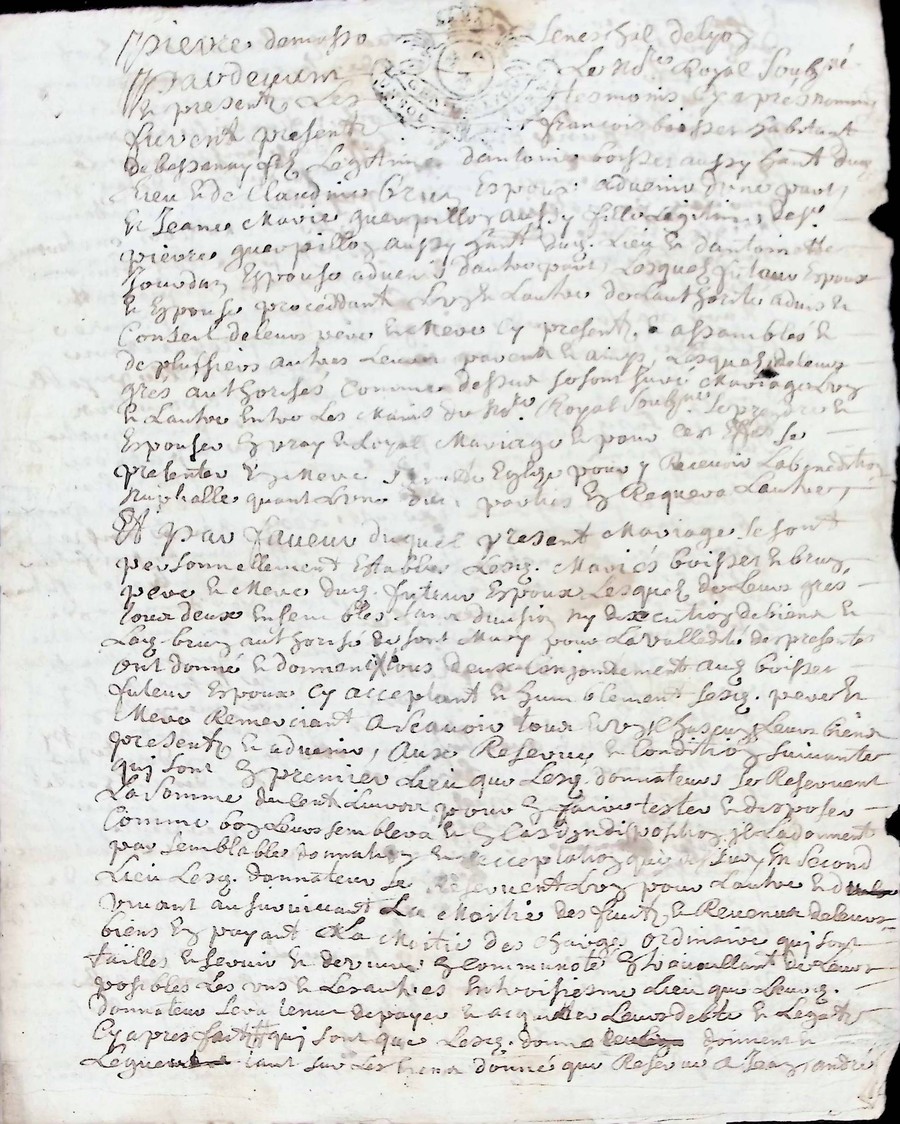 pierre damasso senechal de lyon
Pardevant Le No.re Royal Soubsné
Et presents Les tesmoins Cy apres nommes
furent presents francois boisser habitant
de bessenay filz Legitime dantoine boisser aussy hant dud.
Lieu et de Claudine brun Espoux advenir dune part,
et Jeanne Marie guerpillon aussy fille Legitime de Sr.
pierre guerpillon aussy hant dud. Lieu et dantoinette
Jourdan Espouse advenir dautre part, Lesquelz futeur Espoux
et Espouse proceddant Lun et Lautre de Lauthorité advis et
Conseil de leurs pere et Mere Cy presents et assamblés et
de plussiers autres Leurs parents et amys, Lesquelz de leurs
grés authorisés Comme dessus se sont Juré Mariage Lun
et Lautre Entre Les Mains du No.re Royal Soubsné Se prendre et
Espouser En vray et Loyal Mariage et pour Cest Effet se
presenter En Mere Ste Eglize pour y Recevoir La benediction
nuptialle quant Lune des parties En Requera Lautre,
Et par faveur duquel present Mariage se sont
personnellement Establis Lesd. Mariés boisser et brun,
pere et Mere dud. futeur Espoux Lesquelz de Leurs gres
tous deux Ensembles sans division ny discution de biens et
Lad. brun authorisé de sont Mary pour La Validité des presentes
ont donné et donnent tous deux Conjoinctement aud boisser
futeur Espoux Cy acceptant et humblement Sesd. pere et
Mere Remerciant a Scavoir tous et Un Chascun Leurs biens
presents et advenir, Aux Reserves et Conditions suivantes
qui sont En premier Lieu que Lesd. donnateurs se Reservent
La Somme de Cent Livres pour En faire tester et disposer
Comme bon Leurs semblera et En Cas dindisposition Jl La donnent
par semblable donnation et acceptation que dessus, En Second
Lieu Lesd. donnateurs se Reservent Lun pour Lautre et du
vivant au survivant La Moitié des fruits et Revenus de leurs
biens En payant La Moitié des Charges ordinaires qui sont
tailles et servis et de vivre En Communoté En travaillant de Leurs
posibles Les uns et Les autres En troisiesme Lieu que Leursd.
donnateur Sera tenus de payer et acquitter Leurs debtes et Legats
Cy apres faits qui sont que Lesd. donnateurs donnent et
Leguent tant sur Les biens donné que Reservé a Jean andré